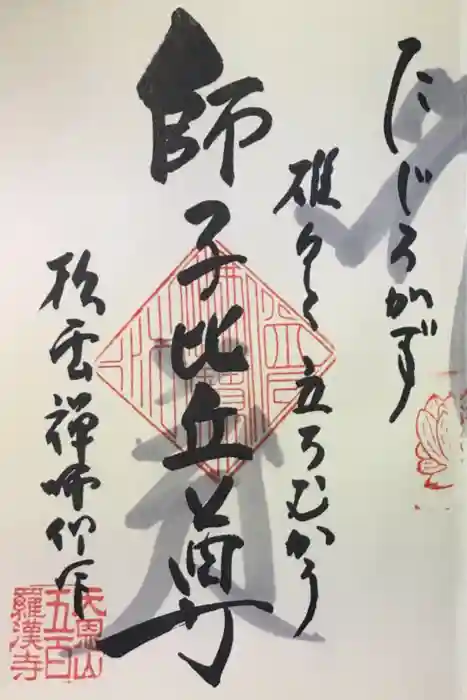 たじろがず
確りと 立ちむかう
師子比丘尊
松雲禪師御作
天恩山
五百
羅漢寺